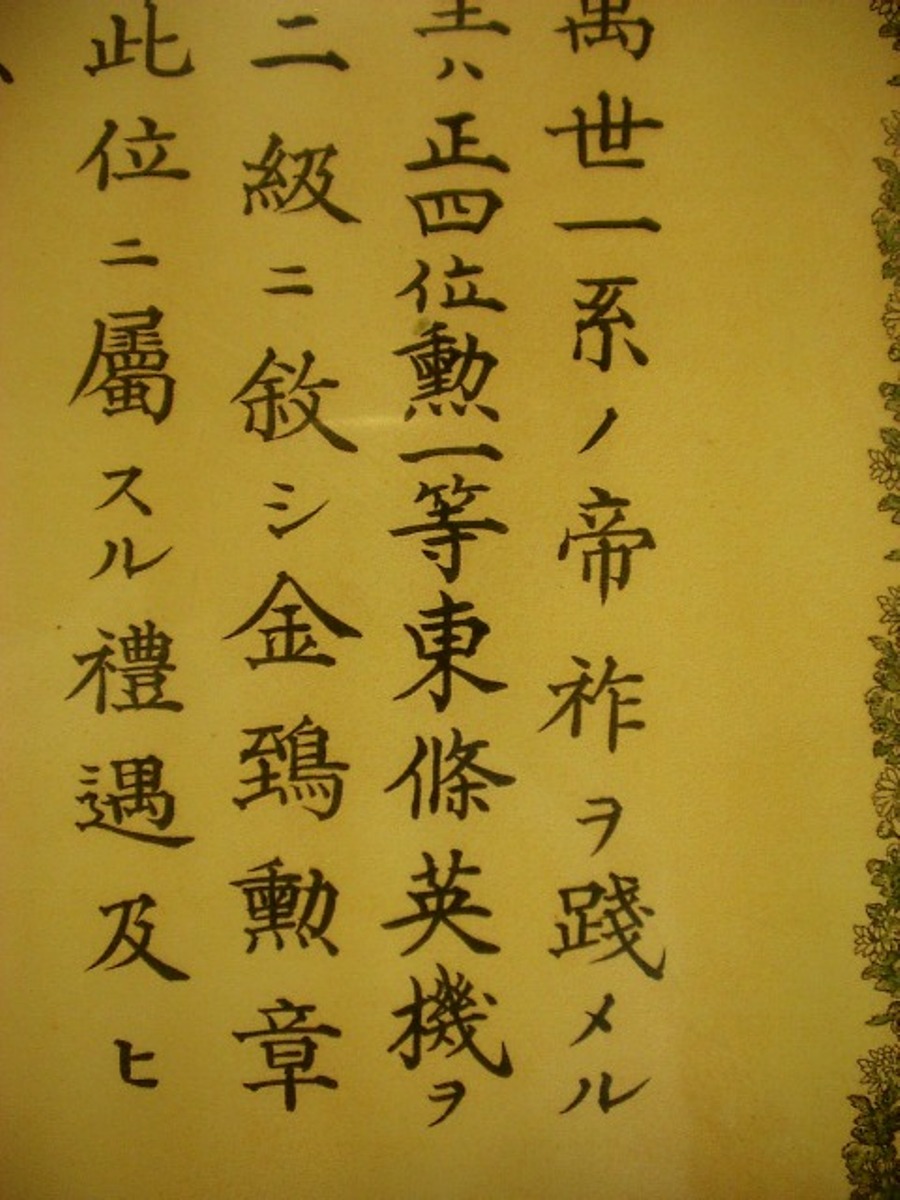 萬世一系ノ帝祚ヲ踐メル
ハ正四位勳一等東條英機ヲ
二級ニ敘シ金鵄勳章
此位ニ屬スル禮遇及ヒ